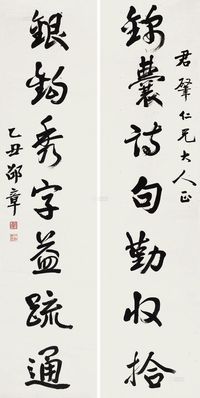 君肇仁兄大人正
錦囊詩句勤收拾
銀鉤秀字益疏通
乙丑邵章